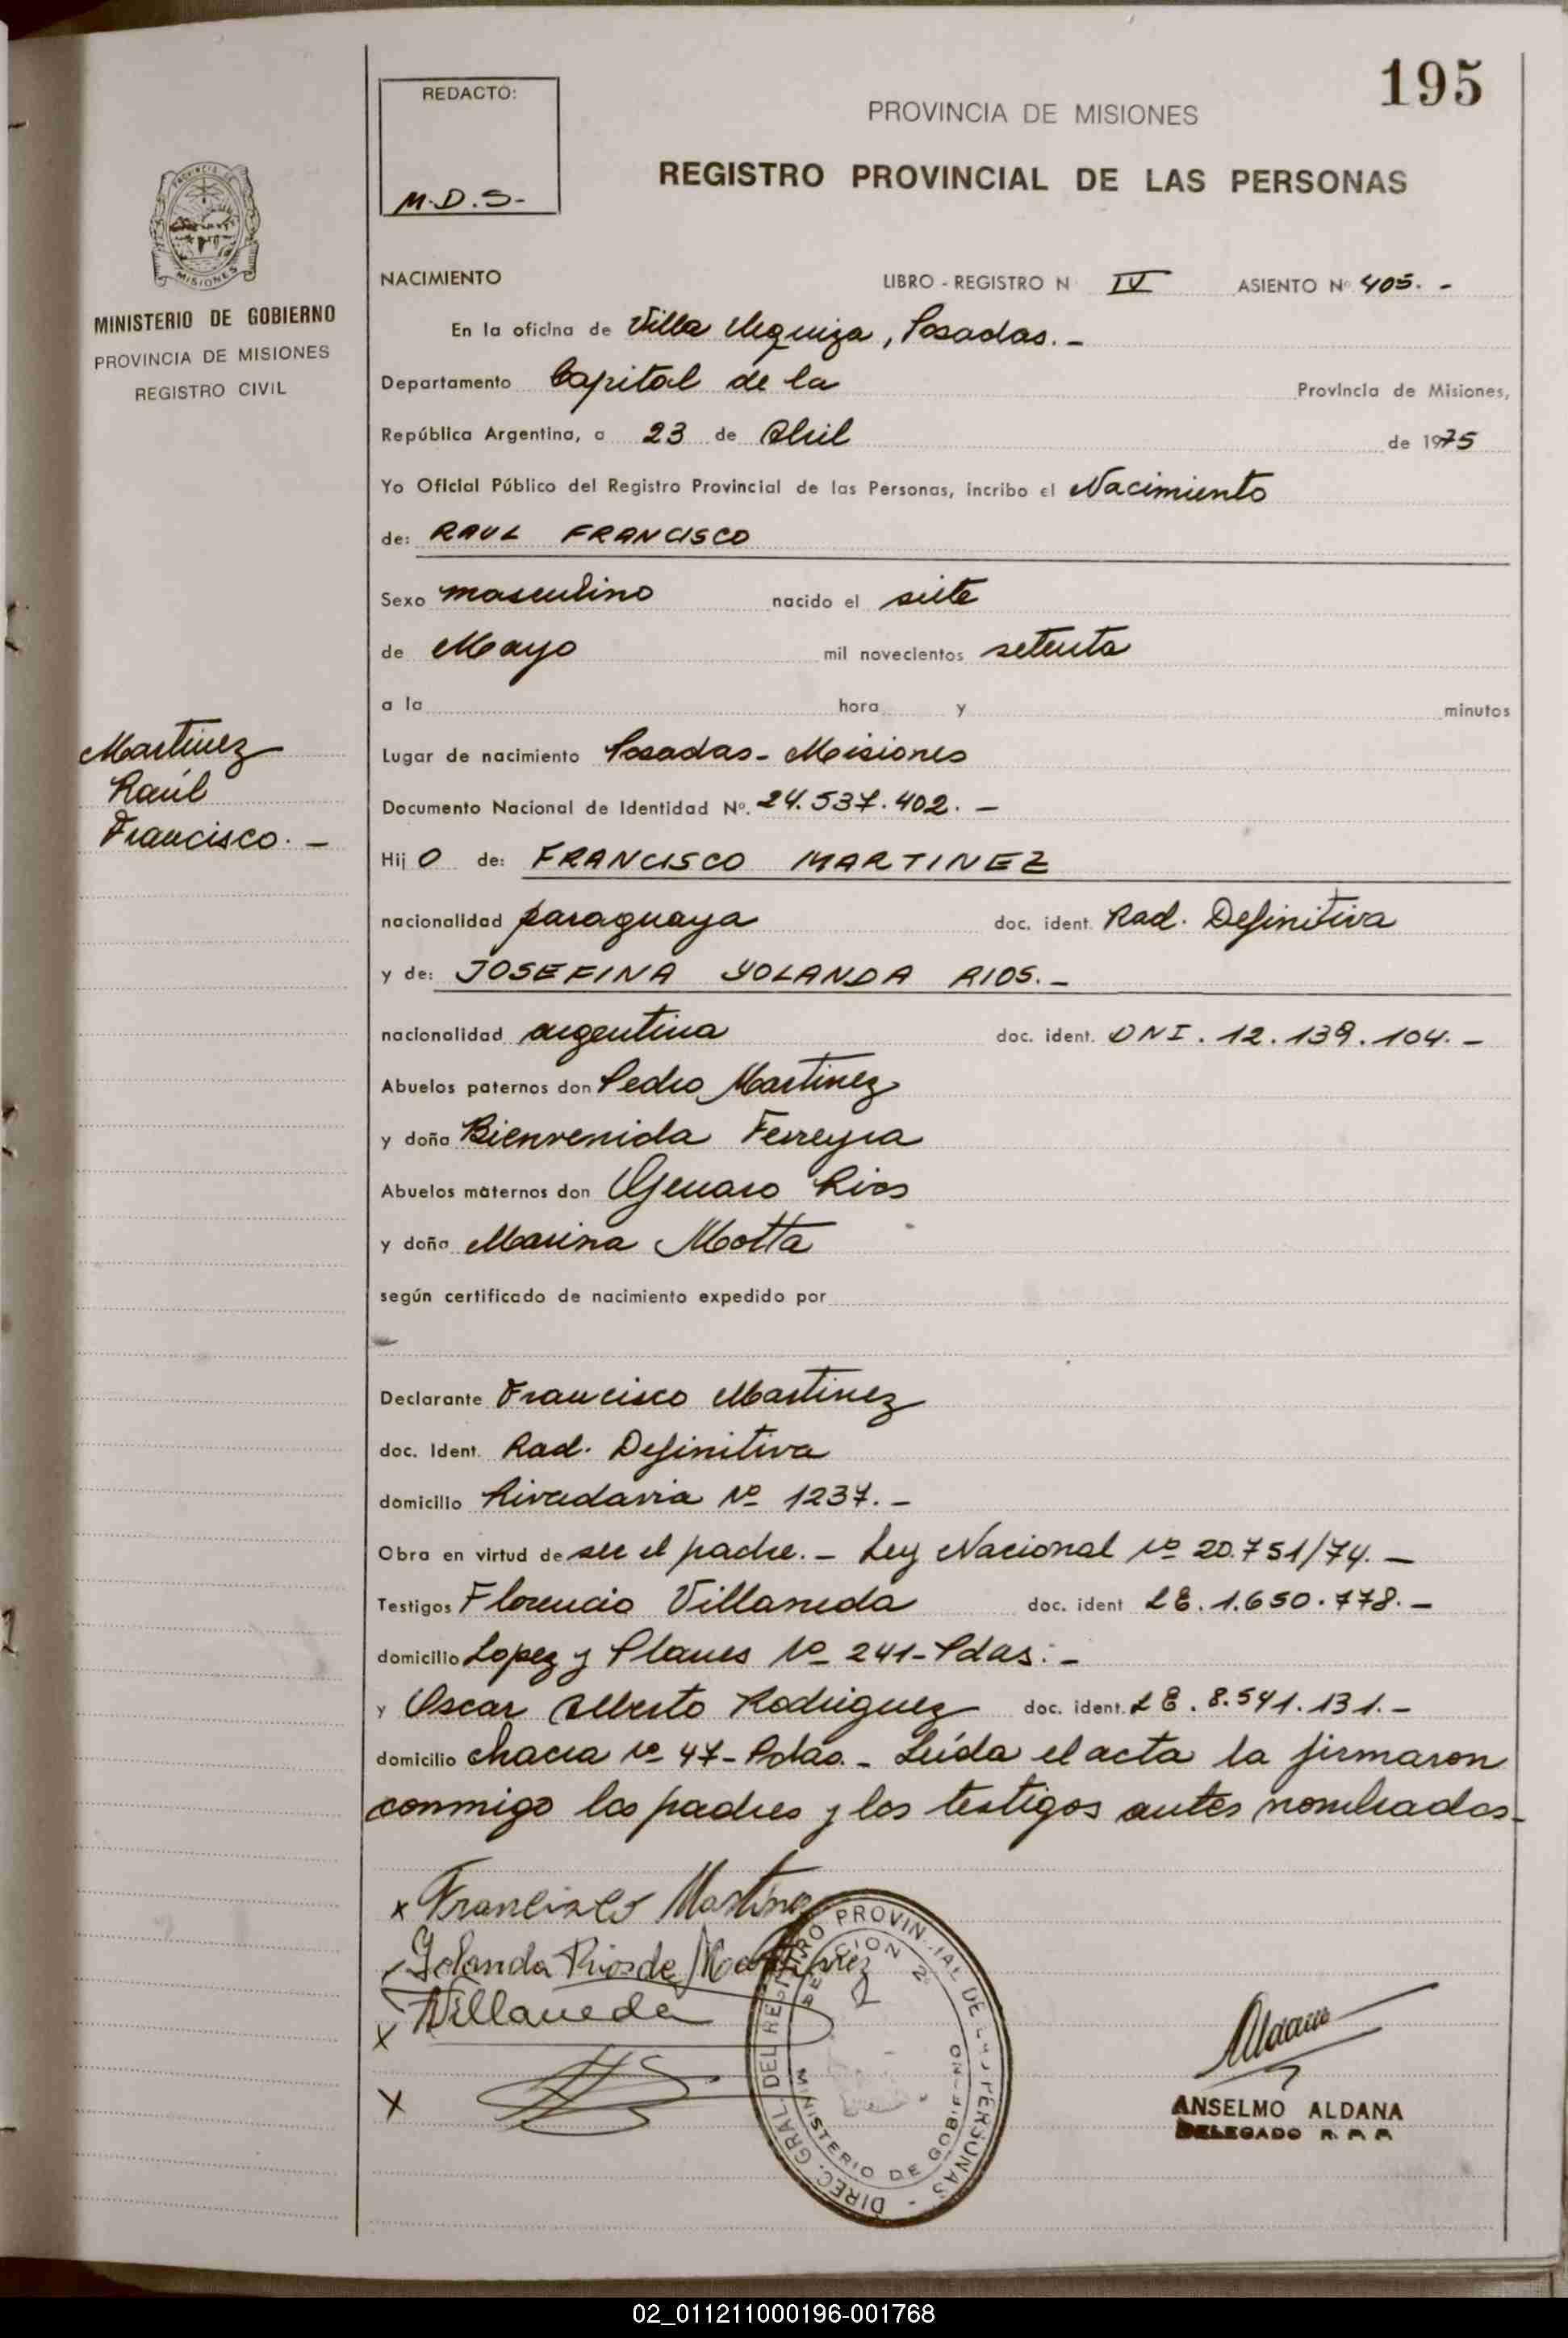 195
REDACTO:
M.D.S-
PROVINCIA DE MISIONES
REGISTRO PROVINCIAL DE LAS PERSONAS
PROVINCIA DE
MISIONES
MINISTERIO DE GOBIERNO
PROVINCIA DE MISIONES
REGISTRO CIVIL
NACIMIENTO LIBRO - REGISTRO N IV ASIENTO Nº 405. -
En la oficina de Villa Urquiza, Posadas. -
Departamento Capital de la Provincia de Misiones,
República Argentina, a 23 de Abril de 1975
Yo Oficial Público del Registro Provincial de las Personas, incribo el Nacimiento
de: RAUL FRANCISCO
Sexo masculino nacido el siete
de Mayo mil novecientos setenta
a la hora y minutos
Martinez
Raúl
Francisco. -
Lugar de nacimiento Posadas - Misiones
Documento Nacional de Identidad Nº. 24.537.402. -
Hij o de: FRANCISCO MARTINEZ
nacionalidad paraguaya doc. ident. Rad. Definitiva
y de: JOSEFINA YOLANDA RIOS. -
nacionalidad argentina doc. ident. DNI. 12.139.104. -
Abuelos paternos don Pedro Martinez
y doña Bienvenida Ferreyra
Abuelos maternos don Genaro Rios
y doña Marina Motta
según certificado de nacimiento expedido por
Declarante Francisco Martinez
doc. Ident. Rad. Definitiva
domicilio Rivadavia Nº 1237. -
Obra en virtud de ser el padre. - Ley Nacional Nº 20.751/74. -
Testigos Florencio Villaneda doc. ident LE. 1.650.778. -
domicilio Lopez y Planes Nº 241 - Pdas. -
y Oscar Alberto Rodriguez doc. ident. LE. 8.541.131. -
domicilio chacra Nº 47 - Pdas. - Leída el acta la firmaron
conmigo los padres y los testigos antes nombrados -
x Francisco Martinez
Yolanda Rios de Martinez
x Villaneda
x
DIREC. GRAL. DEL REGISTRO PROVINCIAL DE LAS PERSONAS -
SECCION 2ª
MINISTERIO DE GOBIERNO
Aldana
ANSELMO ALDANA
DELEGADO R. P. P.
02_011211000196-001768